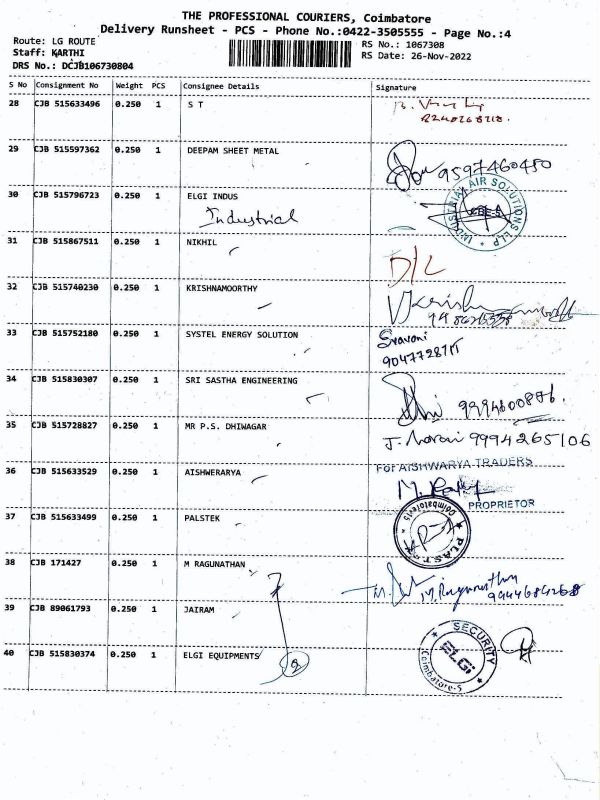 THE PROFESSIONAL COURIERS, Coimbatore
Delivery Runsheet - PCS - Phone No.:0422-3505555 - Page No.:4
Route: LG ROUTE
Staff: KARTHI
DRS No.: DCJB106730804
RS No.: 1067308
RS Date: 26-Nov-2022
S No Consignment No Weight PCS Consignee Details Signature
28 CJB 515633496 0.250 1 S T
29 CJB 515597362 0.250 1 DEEPAM SHEET METAL
9597460480
30 CJB 515796723 0.250 1 ELGI INDUS
Industrial
INDUSTRIAL AIR SOLUTIONS LLP
CBE-5
31 CJB 515867511 0.250 1 NIKHIL
D/L
32 CJB 515740230 0.250 1 KRISHNAMOORTHY
33 CJB 515752180 0.250 1 SYSTEL ENERGY SOLUTION
Sravani
34 CJB 515830307 0.250 1 SRI SASTHA ENGINEERING
9994800876.
35 CJB 515728827 0.250 1 MR P.S. DHIWAGAR
9994265106
36 CJB 515633529 0.250 1 AISHWERARYA
For AISHWARYA TRADERS
PROPRIETOR
37 CJB 515633499 0.250 1 PALSTEK
Coimbatore-15
38 CJB 171427 0.250 1 M RAGUNATHAN
M. Ragunathan
9944684268
39 CJB 89061793 0.250 1 JAIRAM
40 CJB 515830374 0.250 1 ELGI EQUIPMENTS
SECURITY
ELGi
Coimbatore-5